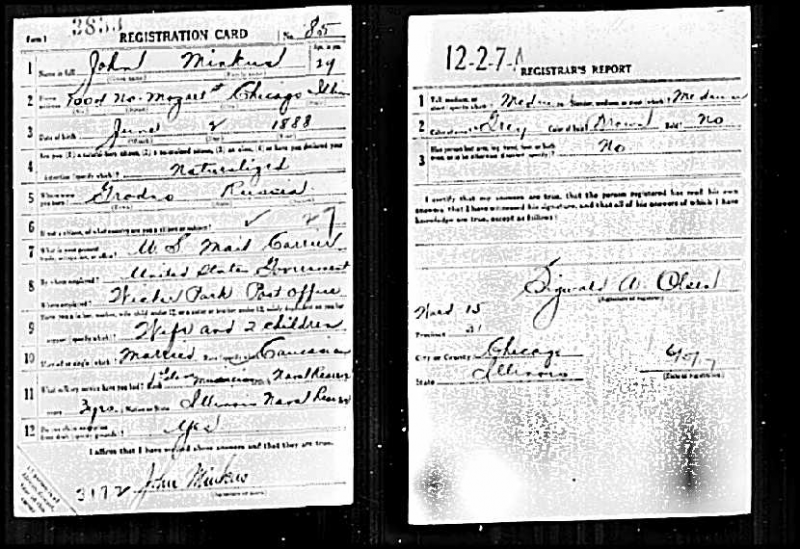 Form 1
REGISTRATION CARD No. 85
1 Name in full John Minkus Age, in yrs. 29
(Given name) (Family name)
2 No. Mozart St Chicago Ills
3 Date of birth June 2 1888
4 Naturalized
5 Grodno Russia
6 If not a citizen, of what country are you a citizen or subject?
7 What is your present trade, occupation, or office? U.S. Mail Carrier
8 By whom employed? United States Government
Where employed? Wicker Park Post Office
9 Have you a father, mother, wife, child under 12, or a sister or brother under 12, solely dependent on you for
support (specify which)? Wife and 2 children
10 Married or single (which)? Married Race (specify which)? Caucasian
11 What military service have you had? Rank Naval Reserve
years 3 yrs. Nation or State Illinois Naval Reserve
12 Do you claim exemption from draft (specify grounds)? Yes
I affirm that I have verified above answers and that they are true.
3172 John Minkus
12-2-7-A
REGISTRAR'S REPORT
1 Tall, medium, or short (specify which)? Medium Slender, medium, or stout (which)? Medium
2 Color of eyes Grey Color of hair Brown Bald? No
3 No
I certify that my answers are true, that the person registered has read his own
answers, that I have witnessed his signature, and that all of his answers of which I have
knowledge are true, except as follows:
Sigwald A. Olsen
(Signature of registrar)
Ward 15
Precinct
City or County Chicago
State Illinois
(Date of registration)